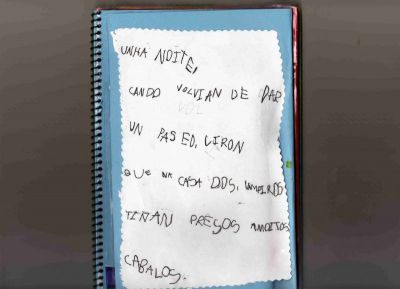 UNHA NOITE,
CANDO VOLVIAN DE DAR
UN PASEO, VIRON
QUE NA CASA DOS, VAMPIROS
TIÑAN PRESOS MOITOS
CABALOS.